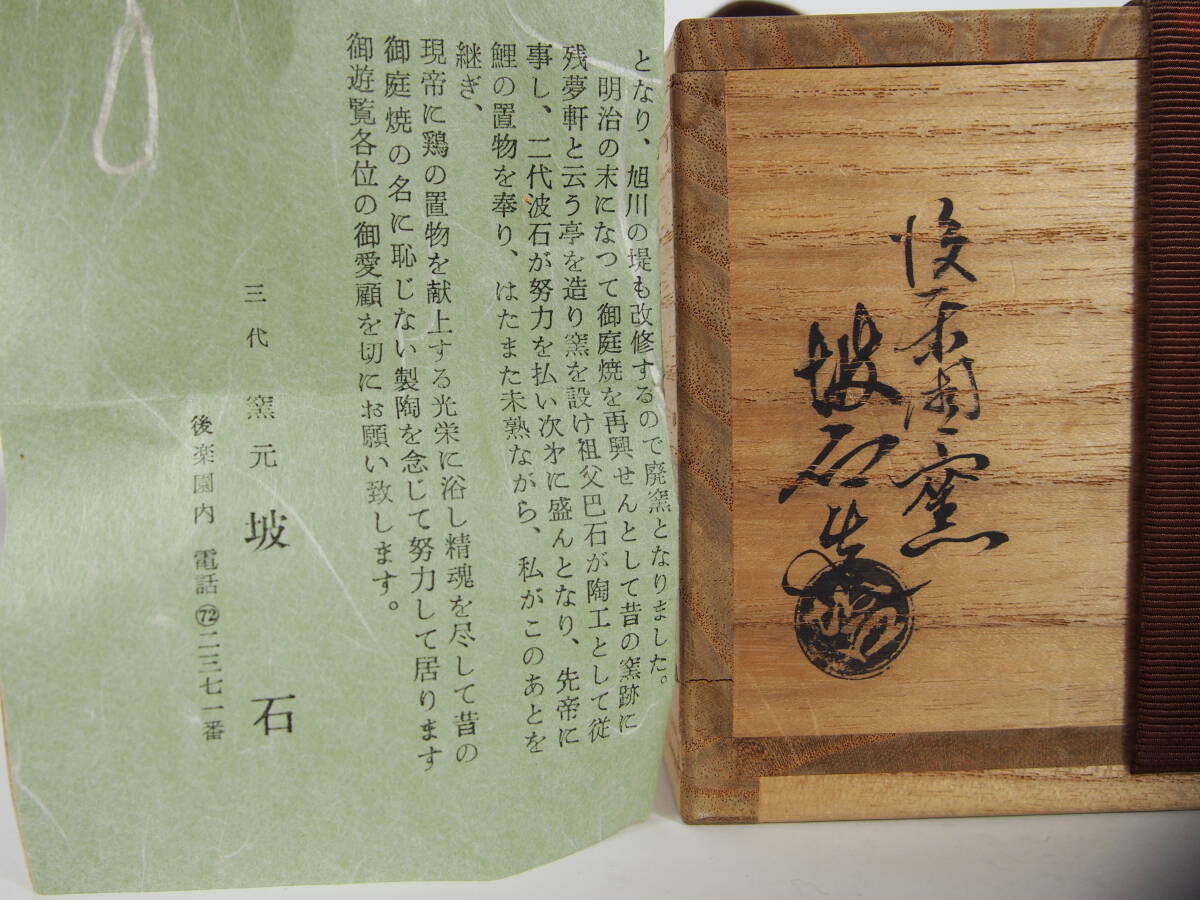 となり、旭川の堤も改修するので廃窯となりました。
明治の末になつて御庭焼を再興せんとして昔の窯跡に
残夢軒と云う亭を造り窯を設け祖父巴石が陶工として従
事し、二代波石が努力を払い次才に盛んとなり、先帝に
鯉の置物を奉り、はたまた未熟ながら、私がこのあとを
継ぎ、
現帝に鶏の置物を献上する光栄に浴し精魂を尽して昔の
御庭焼の名に恥じない製陶を念じて努力して居ります
御遊覧各位の御愛顧を切にお願い致します。
三代 窯元 坡石
後楽園内 電話72二三七一番
後楽園窯
坡石造